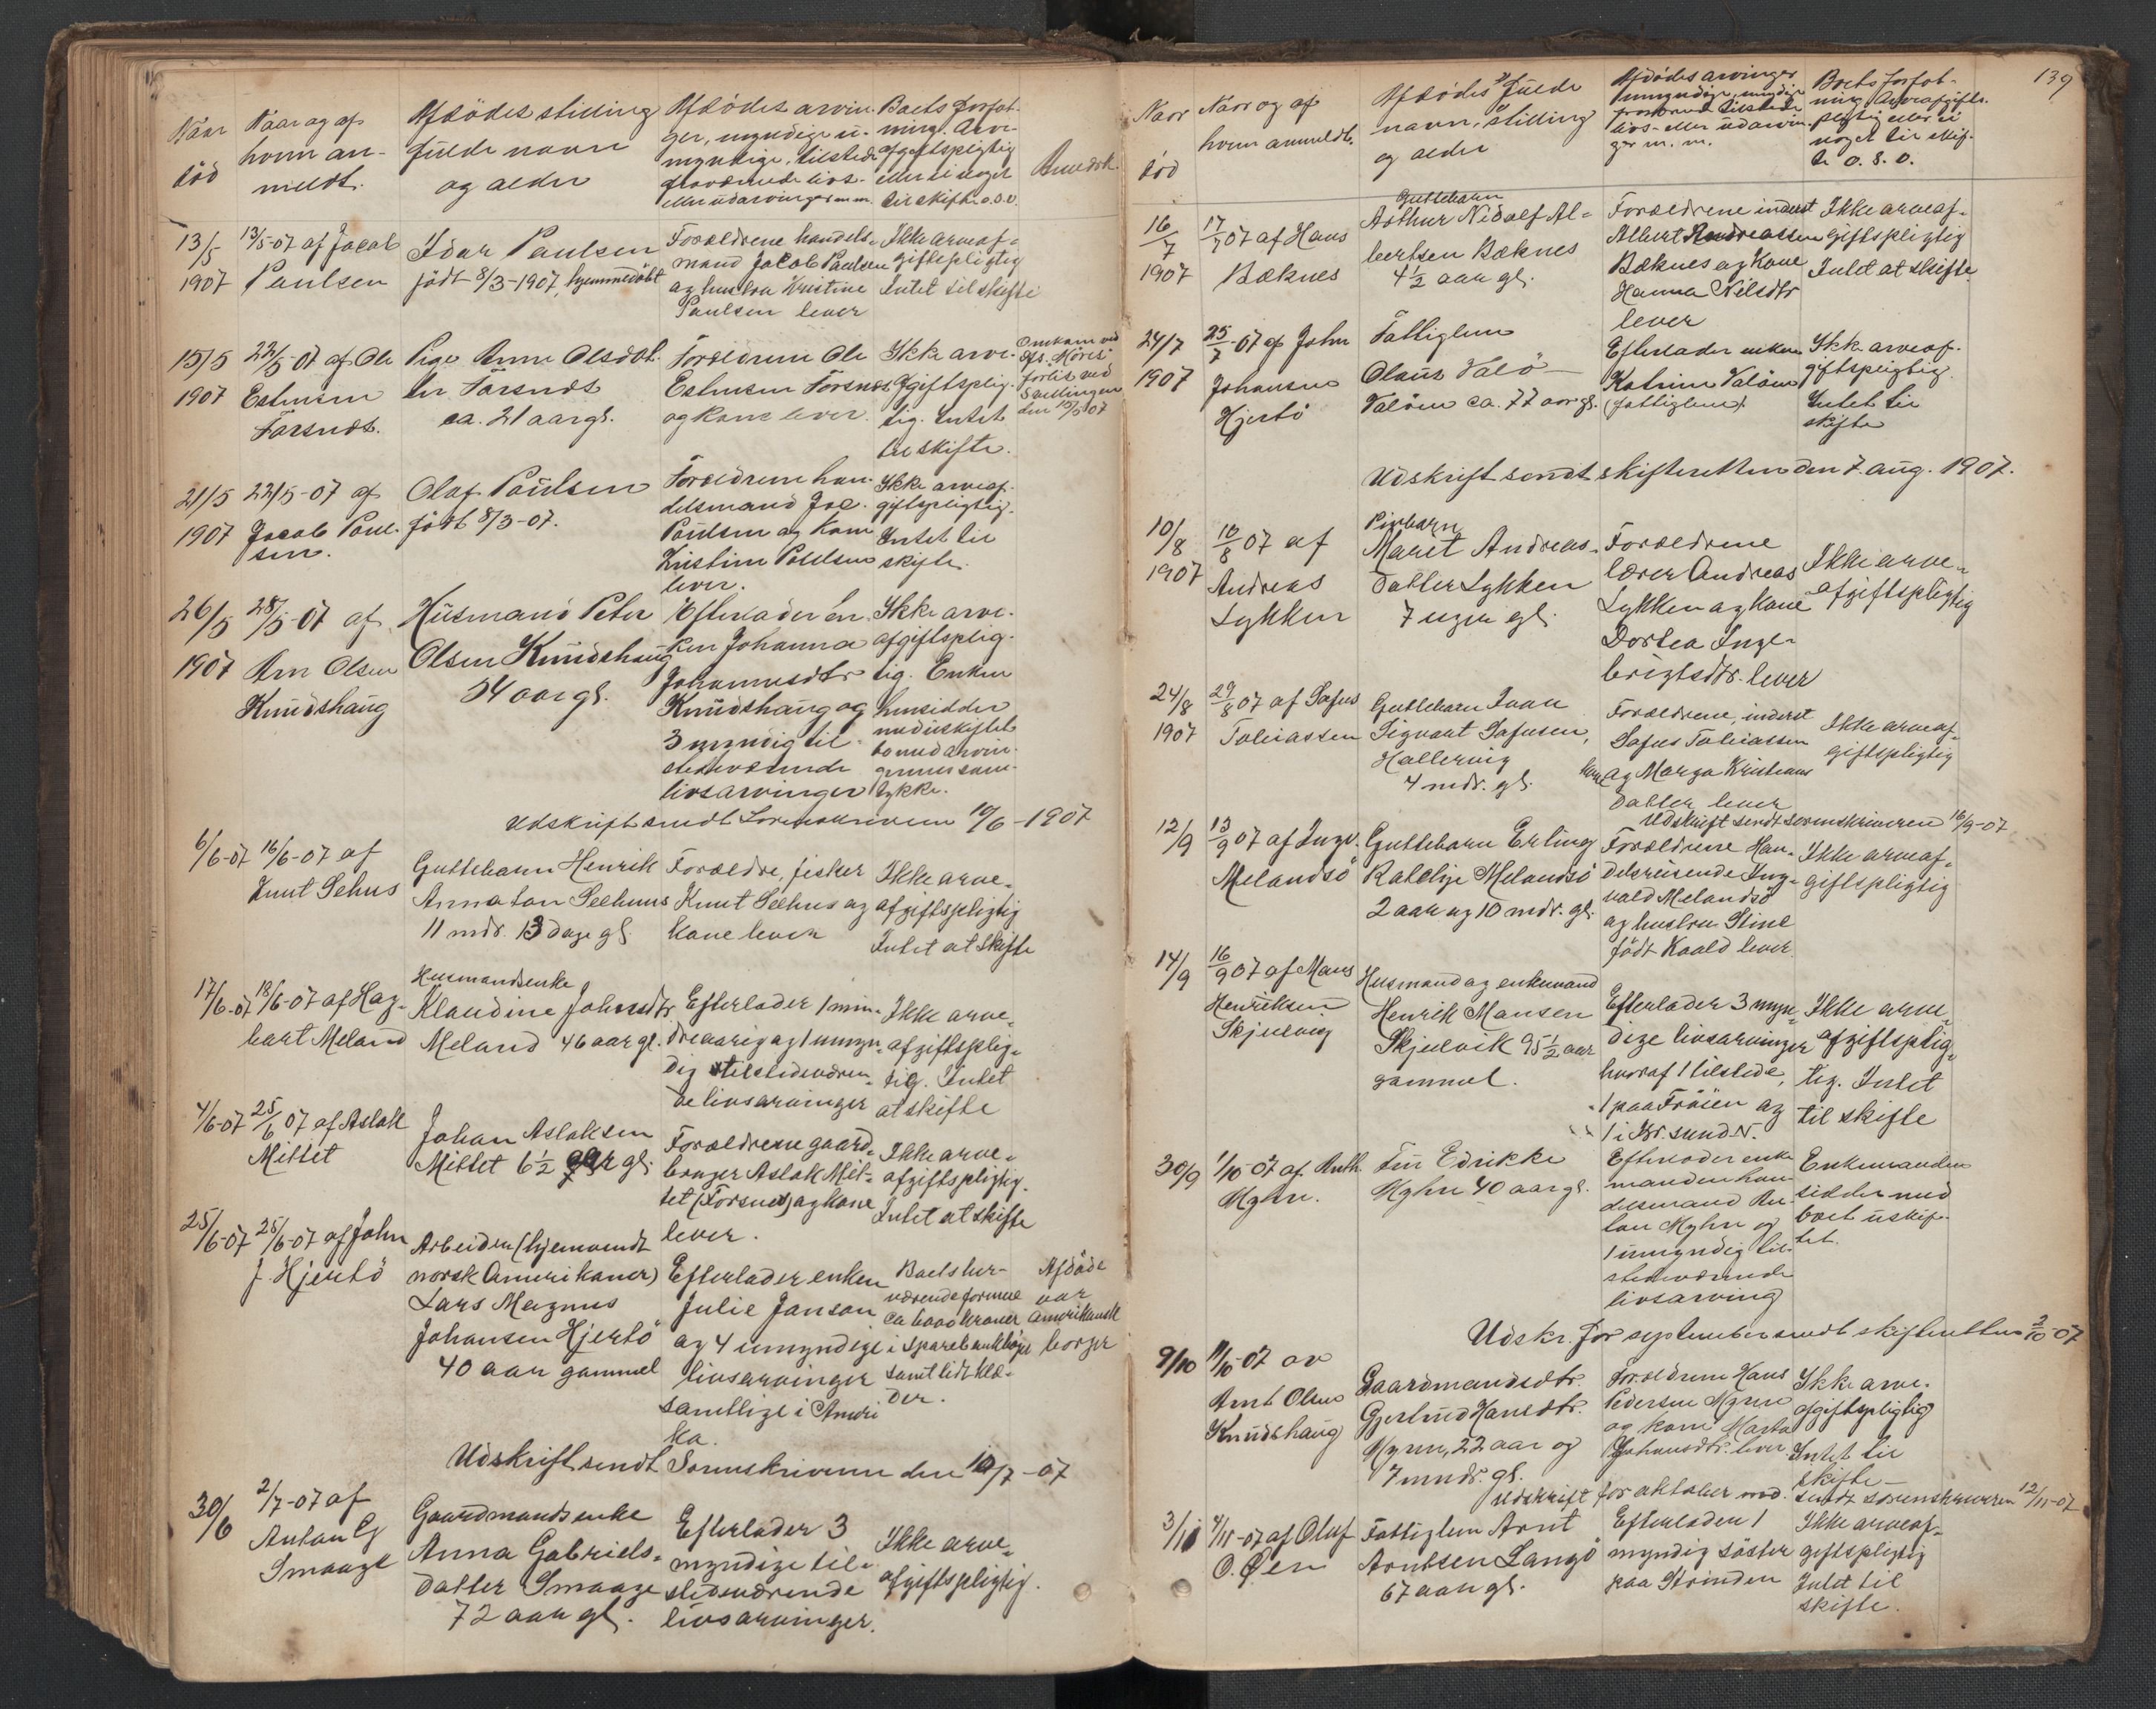 Naar
død
Naar og af
hvem an-
meldt.
Afdødes stilling
fulde navn
og alder
Afdødes arvin-
ger, myndige u-
myndige, tilstede
værende livs-
eller udarvinger m.m.
Boets forfat-
ning. Arve-
afgiftspligtig
eller ei noget
til skifte o.s.v.
Anmerk.
13/5
1907
13/5-07 af Jacob
Paulsen
Idar Paulsen
født 8/3-1907, hjemmedøbt
Forældrene handels-
mand Jacob Paulsen
og hustru Kristine
Paulsen lever
Ikke arveaf-
giftspligtig
Intet til skifte
15/5
1907
22/5-07 af Ole
Estensen
Forsnes.
Pige Anne Olsdat-
ter Forsnes
ca. 21 aar gl.
Forældrene Ole
Estensen Forsnes
og kone lever.
Ikke arve-
afgiftsplig-
tig. Intet
til skifte.
Omkom ved
D/S. "Möres"
forlis ved
Svellingen
den 15/5 07
21/5
1907
22/5-07 af
Jacob Paul-
sen.
Olaf Paulsen
født 8/3-07.
Forældrene han-
delsmand Jac.
Paulsen og kone
Kristine Paulsen
lever.
Ikke arveaf-
giftspligtig.
Intet til
skifte.
26/5
1907
28/5-07 af
Arn Olsen
Knudshaug
Husmand Peter
Olsen Knudshaug
54 aar gl.
Efterlader en-
ken Johanna
Johannesdtr
Knudshaug og
3 myndig til-
stedeværende
livsarvinger
Ikke arve-
afgiftsplig-
tig. Enken
hensidder
med uskiftet
bo med arvin-
gernes sam-
tykke.
Udskrift sendt Sorenskriveren 10/6-1907
6/6-07
16/6-07 af
Knut Sehus
Guttebarn Henrik
Annaton Seehuus
11 mdr. 13 dage gl
Forældre, fisker
Knut Seehus og
kone lever
Ikke arve-
afgiftspligtig
Intet at skifte
17/6-07
18/6-07 af Hag-
bart Meland
Husmandsenke
Klaudine Johnsdtr
Meland 46 aar gl.
Efterlader 1 min-
dreaarig og 1 umyn-
dig tilstedeværen-
de livsarvinger
Ikke arve-
afgiftsplig-
tig. Intet
at skifte
4/6-07
25/6 07 af Aslak
Mittet
Johan Aslaksen
Mittet 6 1/2 aar gl.
Forældrene gaard-
bruger Aslak Mit-
tet (Forsnes) og kone
lever.
Ikke arve-
afgiftspligtig.
Intet at skifte
25/6-07
25/6-07 af John
J. Hjertö
Arbeider (hjemvendt
norsk Amerikaner)
Lars Magnus
Johansen Hjertö
40 aar gammel
Efterlader enken
Julie Janson
og 4 umyndige
livsarvinger
samtlige i Ameri
ka.
Boets her-
værende formue
ca 6000 kroner
i Sparebankbøger
samt lidt klæ-
der.
Afdöde
var
amerikansk
borger
Udskrift sendt Sorenskriveren den 10/7-07
30/6
2/7-07 af
Anton G
Smaage
Gaardmandsenke
Anna Gabriels-
datter Smaage
72 aar gl.
Efterlader 3
myndige til-
stedeværende
livsarvinger.
Ikke arve-
afgiftspligtig.
139
Naar
død
Naar og af
hvem anmeldt.
Afdødes fulde
navn, stilling
og alder
Afdødes arvinger
umyndige, myndige
tilstede
livs- eller udarvin-
ger m. m.
Boets forfat-
ning. Arveafgifts-
pligtig eller ei
noget til skif-
te o. s. v.
16/7
1907
17/7 07 af Hans
Bæknes
Guttebarn
Arthur Nidolf Al-
bertsen Bæknes
4 1/2 aar gl.
Forældrene inderst
Albert Andreassen
Bæknes og kone
Hanna Nilsdtr
lever
Ikke arveaf-
giftspligtig
Intet at skifte.
24/7
1907
25/7-07 af John
Johansen
Hjertö
Fattiglem
Olaus Valö-
Valöen ca. 77 aar gl.
Efterlader enken
Katrine Valöen
(fattiglem).
Ikke arveaf-
giftspligtig.
Intet til
skifte
Udskrift sendt skifteretten den 7. aug. 1907.
10/8
1907
10/8 07 af
Andreas
Lykken
Pigebarn
Marit Andreas-
datter Lykken
7 uger gl.
Forældrene
lærer Andreas
Lykken og kone
Dortea Inge-
brigtsdtr. lever
Ikke arve-
afgiftspligtig
24/8
1907
29/8 07 af Sefus
Tobiassen
Guttebarn Ivan
Sigvart Sefusen,
Hallervig
4 mdr. gl.
Forældrene, inderst
Sefus Tobiassen
kone og Marga Kristians
datter lever
Ikke arveaf-
giftspligtig
Udskrift sendt sorenskriveren 16/9-07
12/9
13/9 07 af Ingv.
Melandsö
Guttebarn Erling
Melandsö
2 aar og 10 mdr. gl.
Forældrene Han-
delsreisende Ing-
vald Melandsö
og hustru Stine
født Kaald lever.
Ikke arveaf-
giftspligtig
14/9
16/9 07 af Mans
Henriksen
Skjelvig
Husmand og enkemand
Henrik Mansen
Skjelvik 95 1/2 aar
gammel.
Efterlader 3 myn-
dige livsarvinger
hvoraf 1 tilstede,
1 paa Fröien og
1 i Kr.sund N.
Ikke arve-
afgiftsplig-
tig. Intet
til skifte
30/9
1/10-07 af Anth.
Myhre.
Fru Edrikke
Myhre 40 aar gl.
Efterlader enke
manden han-
delsmand An-
ton Myhre og
1 umyndig til-
stedeværende
livsarving
Enkemanden
sidder med
boet uskif-
tet.
Udskr. for september sendt skifteretten 2/10-07
9/10
11/10-07 av
Arnt Olsen
Knudshaug
Gaardmandsdtr.
Gjertrud Hansdtr.
Myren, 22 aar og
7 mndr. gl.
Forældrene Hans
Pedersen Myren
og kone Marta
Johansdtr. lever.
Ikke arve-
afgiftspligtig
Intet til
skifte-
Udskrift for oktober md. sendt sorenskriveren 12/11-07
3/11
4/11-07 af Oluf
O. Øen
Fattiglem Arnt
Arntsen Langö
67 aar gl.
Efterlader 1
myndig söster
paa Strinden
Ikke arveaf-
giftspligtig
Intet til
skifte.